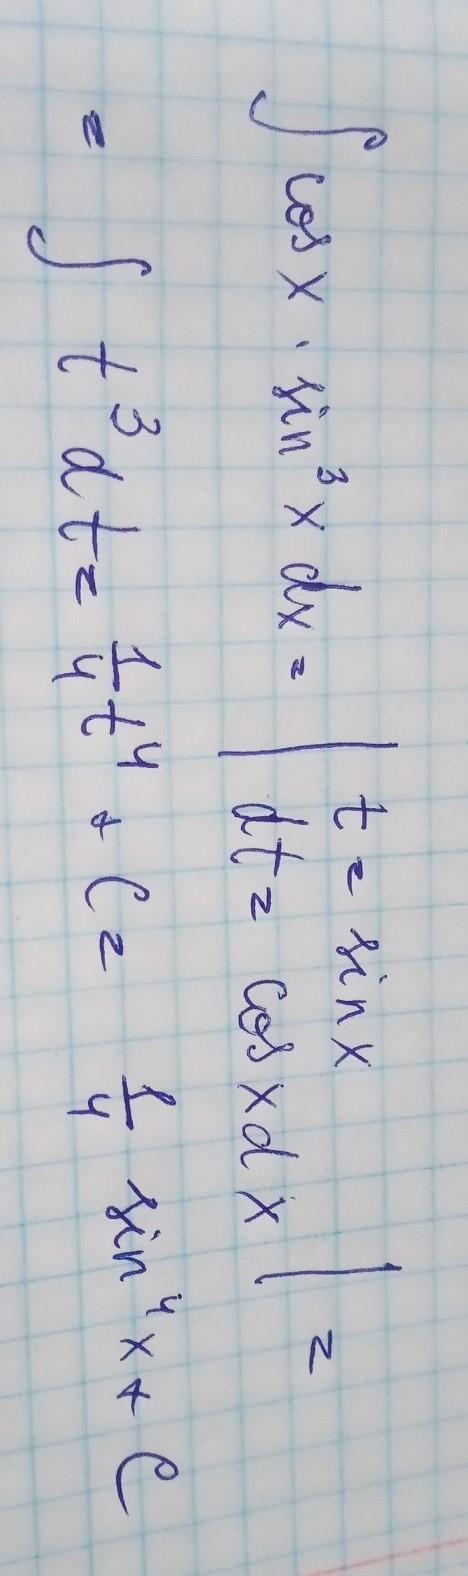 ∫ cos x · sin³ x dx = | t = sin x
dt = cos x dx | =
= ∫ t³ dt = 1/4 t⁴ + C = 1/4 sin⁴ x + C